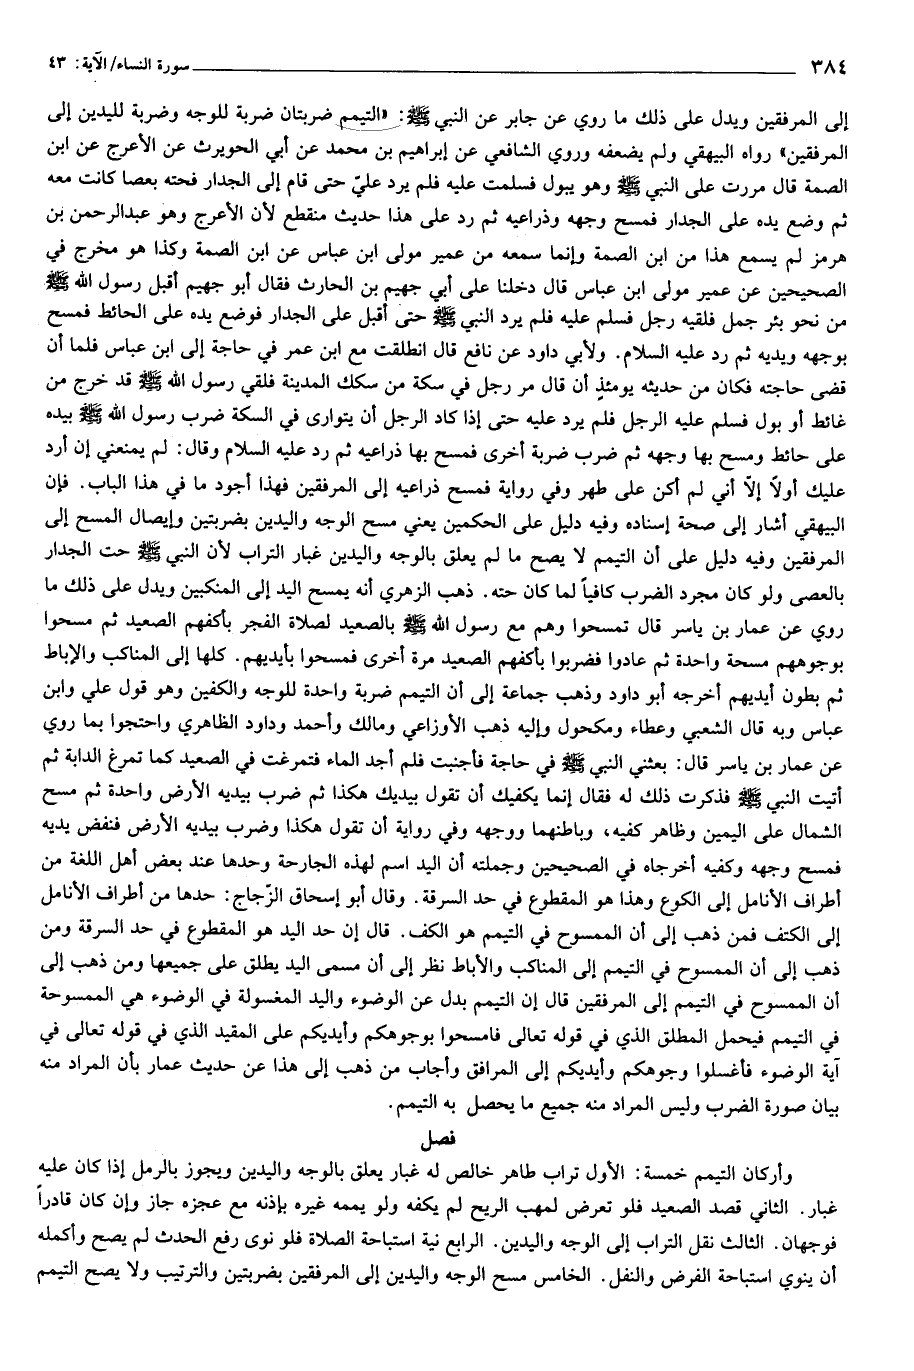 ٣٨٤ سورة النساء/ الآية: ٤٣
إلى المرفقين ويدل على ذلك ما روي عن جابر عن النبي ﷺ: «التيمم ضربتان ضربة للوجه وضربة لليدين إلى
المرفقين» رواه البيهقي ولم يضعفه وروي الشافعي عن إبراهيم بن محمد عن أبي الحويرث عن الأعرج عن ابن
الصمة قال مررت على النبي ﷺ وهو يبول فسلمت عليه فلم يرد عليّ حتى قام إلى الجدار فحته بعصا كانت معه
ثم وضع يده على الجدار فمسح وجهه وذراعيه ثم رد على هذا حديث منقطع لأن الأعرج وهو عبدالرحمن بن
هرمز لم يسمع هذا من ابن الصمة وإنما سمعه من عمير مولى ابن عباس عن ابن الصمة وكذا هو مخرج في
الصحيحين عن عمير مولى ابن عباس قال دخلنا على أبي جهيم بن الحارث فقال أبو جهيم أقبل رسول الله ﷺ
من نحو بئر جمل فلقيه رجل فسلم عليه فلم يرد النبي ﷺ حتى أقبل على الجدار فوضع يده على الحائط فمسح
بوجهه ويديه ثم رد عليه السلام. ولأبي داود عن نافع قال انطلقت مع ابن عمر في حاجة إلى ابن عباس فلما أن
قضى حاجته فكان من حديثه يومئذٍ أن قال مر رجل في سكة من سكك المدينة فلقي رسول الله ﷺ قد خرج من
غائط أو بول فسلم عليه الرجل فلم يرد عليه حتى إذا كاد الرجل أن يتوارى في السكة ضرب رسول الله ﷺ بيده
على حائط ومسح بها وجهه ثم ضرب ضربة أخرى فمسح بها ذراعيه ثم رد عليه السلام وقال: لم يمنعني إن أرد
عليك أولاً إلاّ أني لم أكن على طهر وفي رواية فمسح ذراعيه إلى المرفقين فهذا أجود ما في هذا الباب. فإن
البيهقي أشار إلى صحة إسناده وفيه دليل على الحكمين يعني مسح الوجه واليدين بضربتين وإيصال المسح إلى
المرفقين وفيه دليل على أن التيمم لا يصح ما لم يعلق بالوجه واليدين غبار التراب لأن النبي ﷺ حت الجدار
بالعصى ولو كان مجرد الضرب كافياً لما كان حته. ذهب الزهري أنه يمسح اليد إلى المنكبين ويدل على ذلك ما
روي عن عمار بن ياسر قال تمسحوا وهم مع رسول الله ﷺ بالصعيد لصلاة الفجر بأكفهم الصعيد ثم مسحوا
بوجوههم مسحة واحدة ثم عادوا فضربوا بأكفهم الصعيد مرة أخرى فمسحوا بأيديهم. كلها إلى المناكب والإباط
ثم بطون أيديهم أخرجه أبو داود وذهب جماعة إلى أن التيمم ضربة واحدة للوجه والكفين وهو قول علي وابن
عباس وبه قال الشعبي وعطاء ومكحول وإليه ذهب الأوزاعي ومالك وأحمد وداود الظاهري واحتجوا بما روي
عن عمار بن ياسر قال: بعثني النبي ﷺ في حاجة فأجنبت فلم أجد الماء فتمرغت في الصعيد كما تمرغ الدابة ثم
أتيت النبي ﷺ فذكرت ذلك له فقال إنما يكفيك أن تقول بيديك هكذا ثم ضرب بيديه الأرض واحدة ثم مسح
الشمال على اليمين وظاهر كفيه، وباطنهما ووجهه وفي رواية أن تقول هكذا وضرب بيديه الأرض فنفض يديه
فمسح وجهه وكفيه أخرجاه في الصحيحين وجملته أن اليد اسم لهذه الجارحة وحدها عند بعض أهل اللغة من
أطراف الأنامل إلى الكوع وهذا هو المقطوع في حد السرقة. وقال أبو إسحاق الزّجاج: حدها من أطراف الأنامل
إلى الكتف فمن ذهب إلى أن الممسوح في التيمم هو الكف. قال إن حد اليد هو المقطوع في حد السرقة ومن
ذهب إلى أن الممسوح في التيمم إلى المناكب والأباط نظر إلى أن مسمى اليد يطلق على جميعها ومن ذهب إلى
أن الممسوح في التيمم إلى المرفقين قال إن التيمم بدل عن الوضوء واليد المغسولة في الوضوء هي الممسوحة
في التيمم فيحمل المطلق الذي في قوله تعالى فامسحوا بوجوهكم وأيديكم على المقيد الذي في قوله تعالى في
آية الوضوء فأغسلوا وجوهكم وأيديكم إلى المرافق وأجاب من ذهب إلى هذا عن حديث عمار بأن المراد منه
بيان صورة الضرب وليس المراد منه جميع ما يحصل به التيمم.
فصل
وأركان التيمم خمسة: الأول تراب طاهر خالص له غبار يعلق بالوجه واليدين ويجوز بالرمل إذا كان عليه
غبار. الثاني قصد الصعيد فلو تعرض لمهب الريح لم يكفه ولو يممه غيره بإذنه مع عجزه جاز وإن كان قادراً
فوجهان. الثالث نقل التراب إلى الوجه واليدين. الرابع نية استباحة الصلاة فلو نوى رفع الحدث لم يصح وأكمله
أن ينوي استباحة الفرض والنفل. الخامس مسح الوجه واليدين إلى المرفقين بضربتين والترتيب ولا يصح التيمم